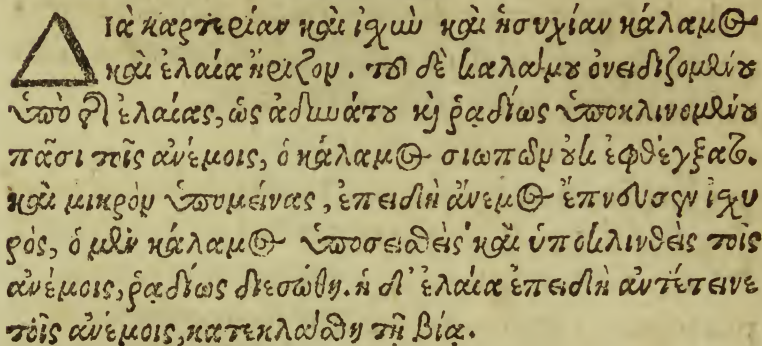 Διὰ καρτερίαν καὶ ἰχὺν καὶ ἡσυχίαν κάλαμος
καὶ ἐλαία ἤριζον. τοῦ δὲ καλάμου ὀνειδιζομένου
ὑπὸ τῆς ἐλαίας, ὡς ἀδυνάτου καὶ ῥᾳδίως ὑποκλινομένου
πᾶσι τοῖς ἀνέμοις, ὁ κάλαμος σιωπῶν οὐκ ἐφθέγξατο.
καὶ μικρὸν ὑπομείνας, ἐπειδὴ ἄνεμος ἔπνευσεν ἰχυ
ρός, ὁ μὲν κάλαμος ὑποσεισθεὶς καὶ ὑποκλινθεὶς τοῖς
ἀνέμοις, ῥᾳδίως διεσώθη. ἡ δ' ἐλαία ἐπειδὴ ἀντέτεινε
τοῖς ἀνέμοις, κατεκλάσθη τῇ βίᾳ.